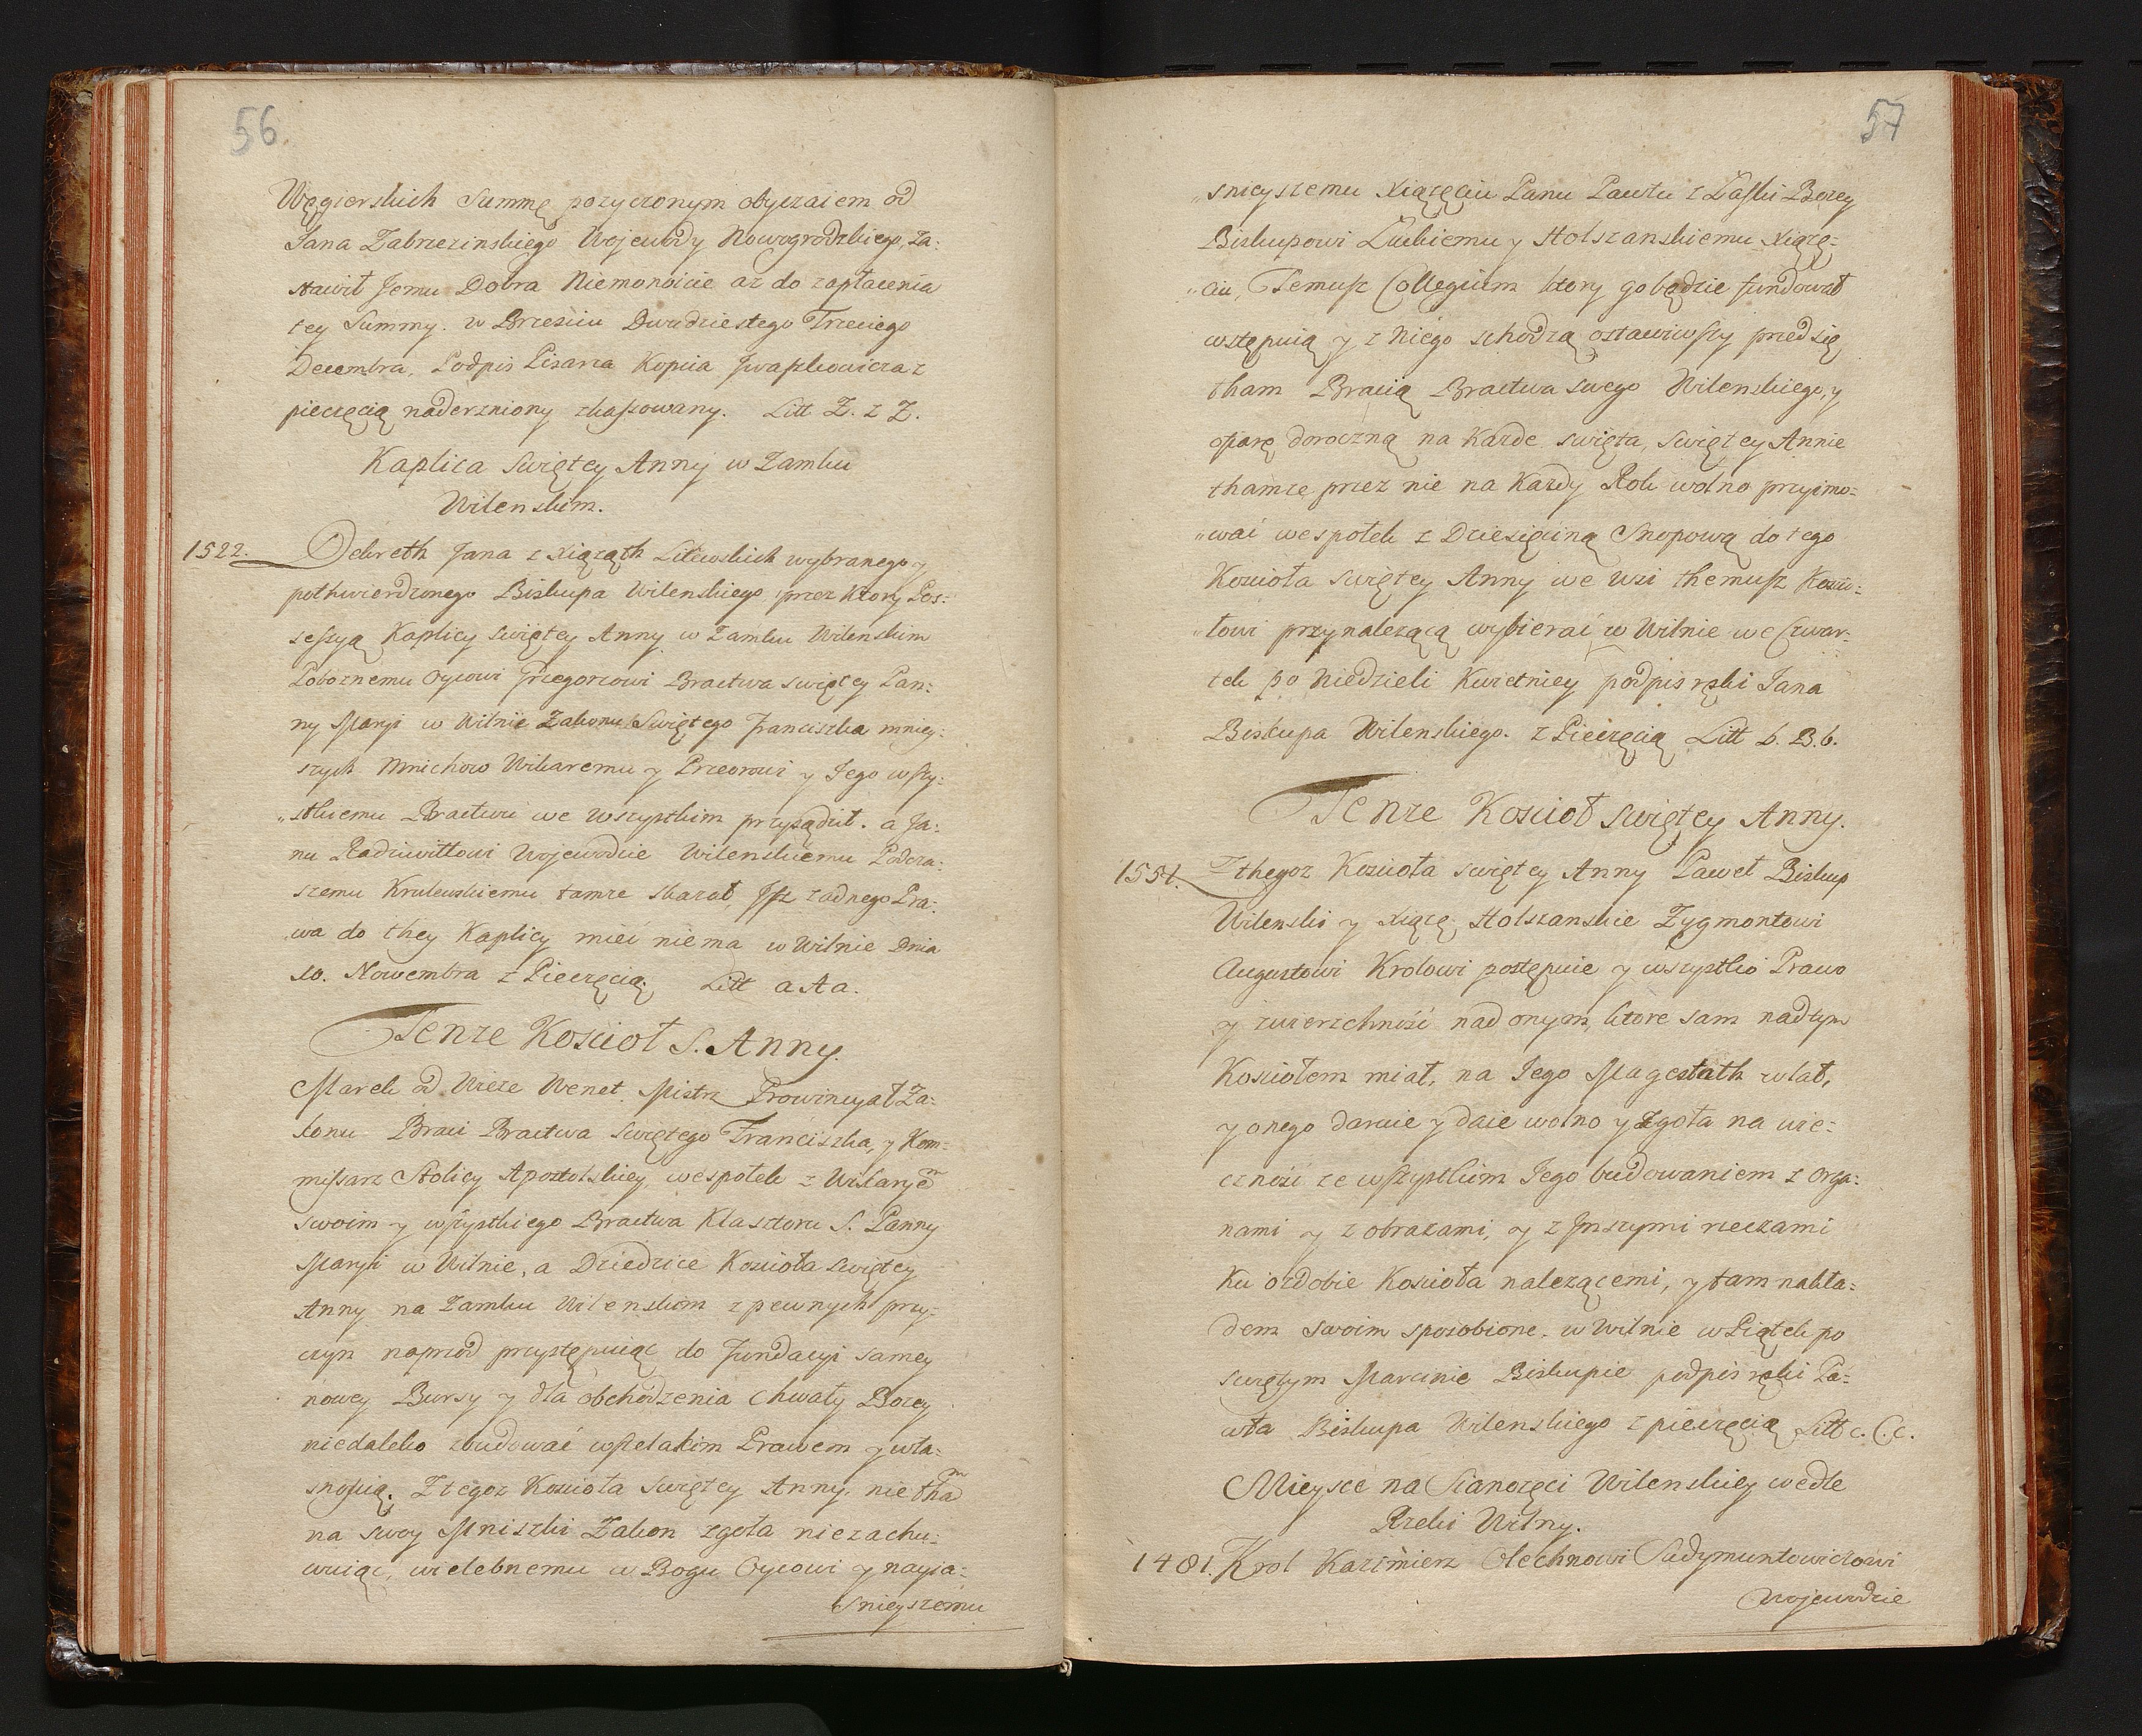 56.
Węgierskich Summę pozyczonym obyczaiem od
Jana Zabrzezinskiego Wojewody Nowogrodzkiego, Za=
stawił Jemu Dobra Niemonoicie az do zapłacenia
tey Summy. w Brzesciu Dwudziestego Trzeciego
Decembra, Podpis Pisarza Kopcia Jwaszkowicza z
pieczęcią naderzniony skassowany. Litt Z. z Z.
Kaplica Swiętey Anny w Zamku
Wilenskim.
1522. Dekreth Jana z Xiąząth Litewskich wybranego y
pothwierdzonego Biskupa Wilenskiego, przez ktory Pos=
sessyą Kaplicy Swiętey Anny w Zamku Wilenskim
Poboznemu Oycowi Grzegorzowi Bractwa Swiętey Pan=
ny Maryi w Wilnie Zakonu Swiętego Franciszka mniey=
szych Mnichow Wikaremu y Przeorowi y Jego wszy=
„stkiemu Bractwu we wszystkim przysądził. a Ja=
nu Radziwiłłowi Wojewodzie Wilenskiemu Podcza=
szemu Krulewskiemu tamze skazał, Jsz zadnego Pra=
wa do they Kaplicy mieć niema w Wilnie Dnia
10. Nowembra z Pieczęcią. Litt a A a.
Tenze Kosciół S. Anny.
Marek od Wieze Wenet. Mistrz Prowincyał Za=
konu Braci Bractwa Swiętego Franciszka, y Kom=
missarz Stolicy Apostolskiey, wespołek z Wikaryem
swoim y wszystkiego Bractwa Klasztoru S. Panny
Maryi w Wilnie, a Dziedzice Kosciola Swiętey
Anny na Zamku Wilenskim z pewnych przy=
czyn naprzod przystępuiąc do Fundacyi samey
nowey Bursy y dla obchodzenia Chwały Bozey
niedaleko zbudować wszelakim Prawem y wła=
snością. Ztegoz Kosciola Swiętey Anny. nic tham
na swoy Mniszki Zakon zgoła niezachu=
wuiąc, wielebnemu w Bogu Oycowi y nayia=
snieyszemu
57
„snieyszemu Xiązęciu Panu Pawłu z Łaski Bozey
Biskupowi Łuckiemu y Holszanskiemu Xiązę=
„ciu, Temusz Collegium ktory go będzie fundował
wstępuią y z Niego schodzą ostawiwszy przedsię
tham Bracią Bractwa swego Wilenskiego, y
ofiarę doroczną na Kazde swięta, Swiętey Annie
thamze przez nie na Kazdy Rok wolno przyimo=
„wać wespołek z Dziesięciną Snopową do tego
Kosciola swiętey Anny we wsi themusz Koscio=
„łowi przynalezącą wybierać w Wilnie we Czwar=
tek po Niedzieli Kwietniey podpis ręki Jana
Biskupa Wilenskiego. z Pieczęcią Litt b. B. b.
Tenze Kosciół Swiętey Anny.
1551. Z thegoz Kosciola swiętey Anny Paweł Biskup
Wilenski y Xiązę Holszanskie Zygmontowi
Augustowi Krolowi postępuie y wszystko Prawo
y zwierzchność nad onym, ktore sam nad tym
Kosciołem miał, na Jego Magestath wlał,
y onego daruie y daie wolno y zgoła na wie=
czność ze wszystkim Jego budowaniem z Orga=
nami y z obrazami, y z Jnszymi rzeczami
Ku ozdobie Kosciola nalezącemi, y tam nakła=
dem swoim sposobione. w Wilnie w Piątek po
swiętym Marcinie Biskupie podpis ręki Pa=
wła Biskupa Wilenskiego z pieczęcią Litt c. C. c.
Mieysce na Sianozęci Wilenskiey wedle
Rzeki Wilny.
1481. Krol Kazimierz Olechnowi Sudymuntowiczowi
Wojewodzie